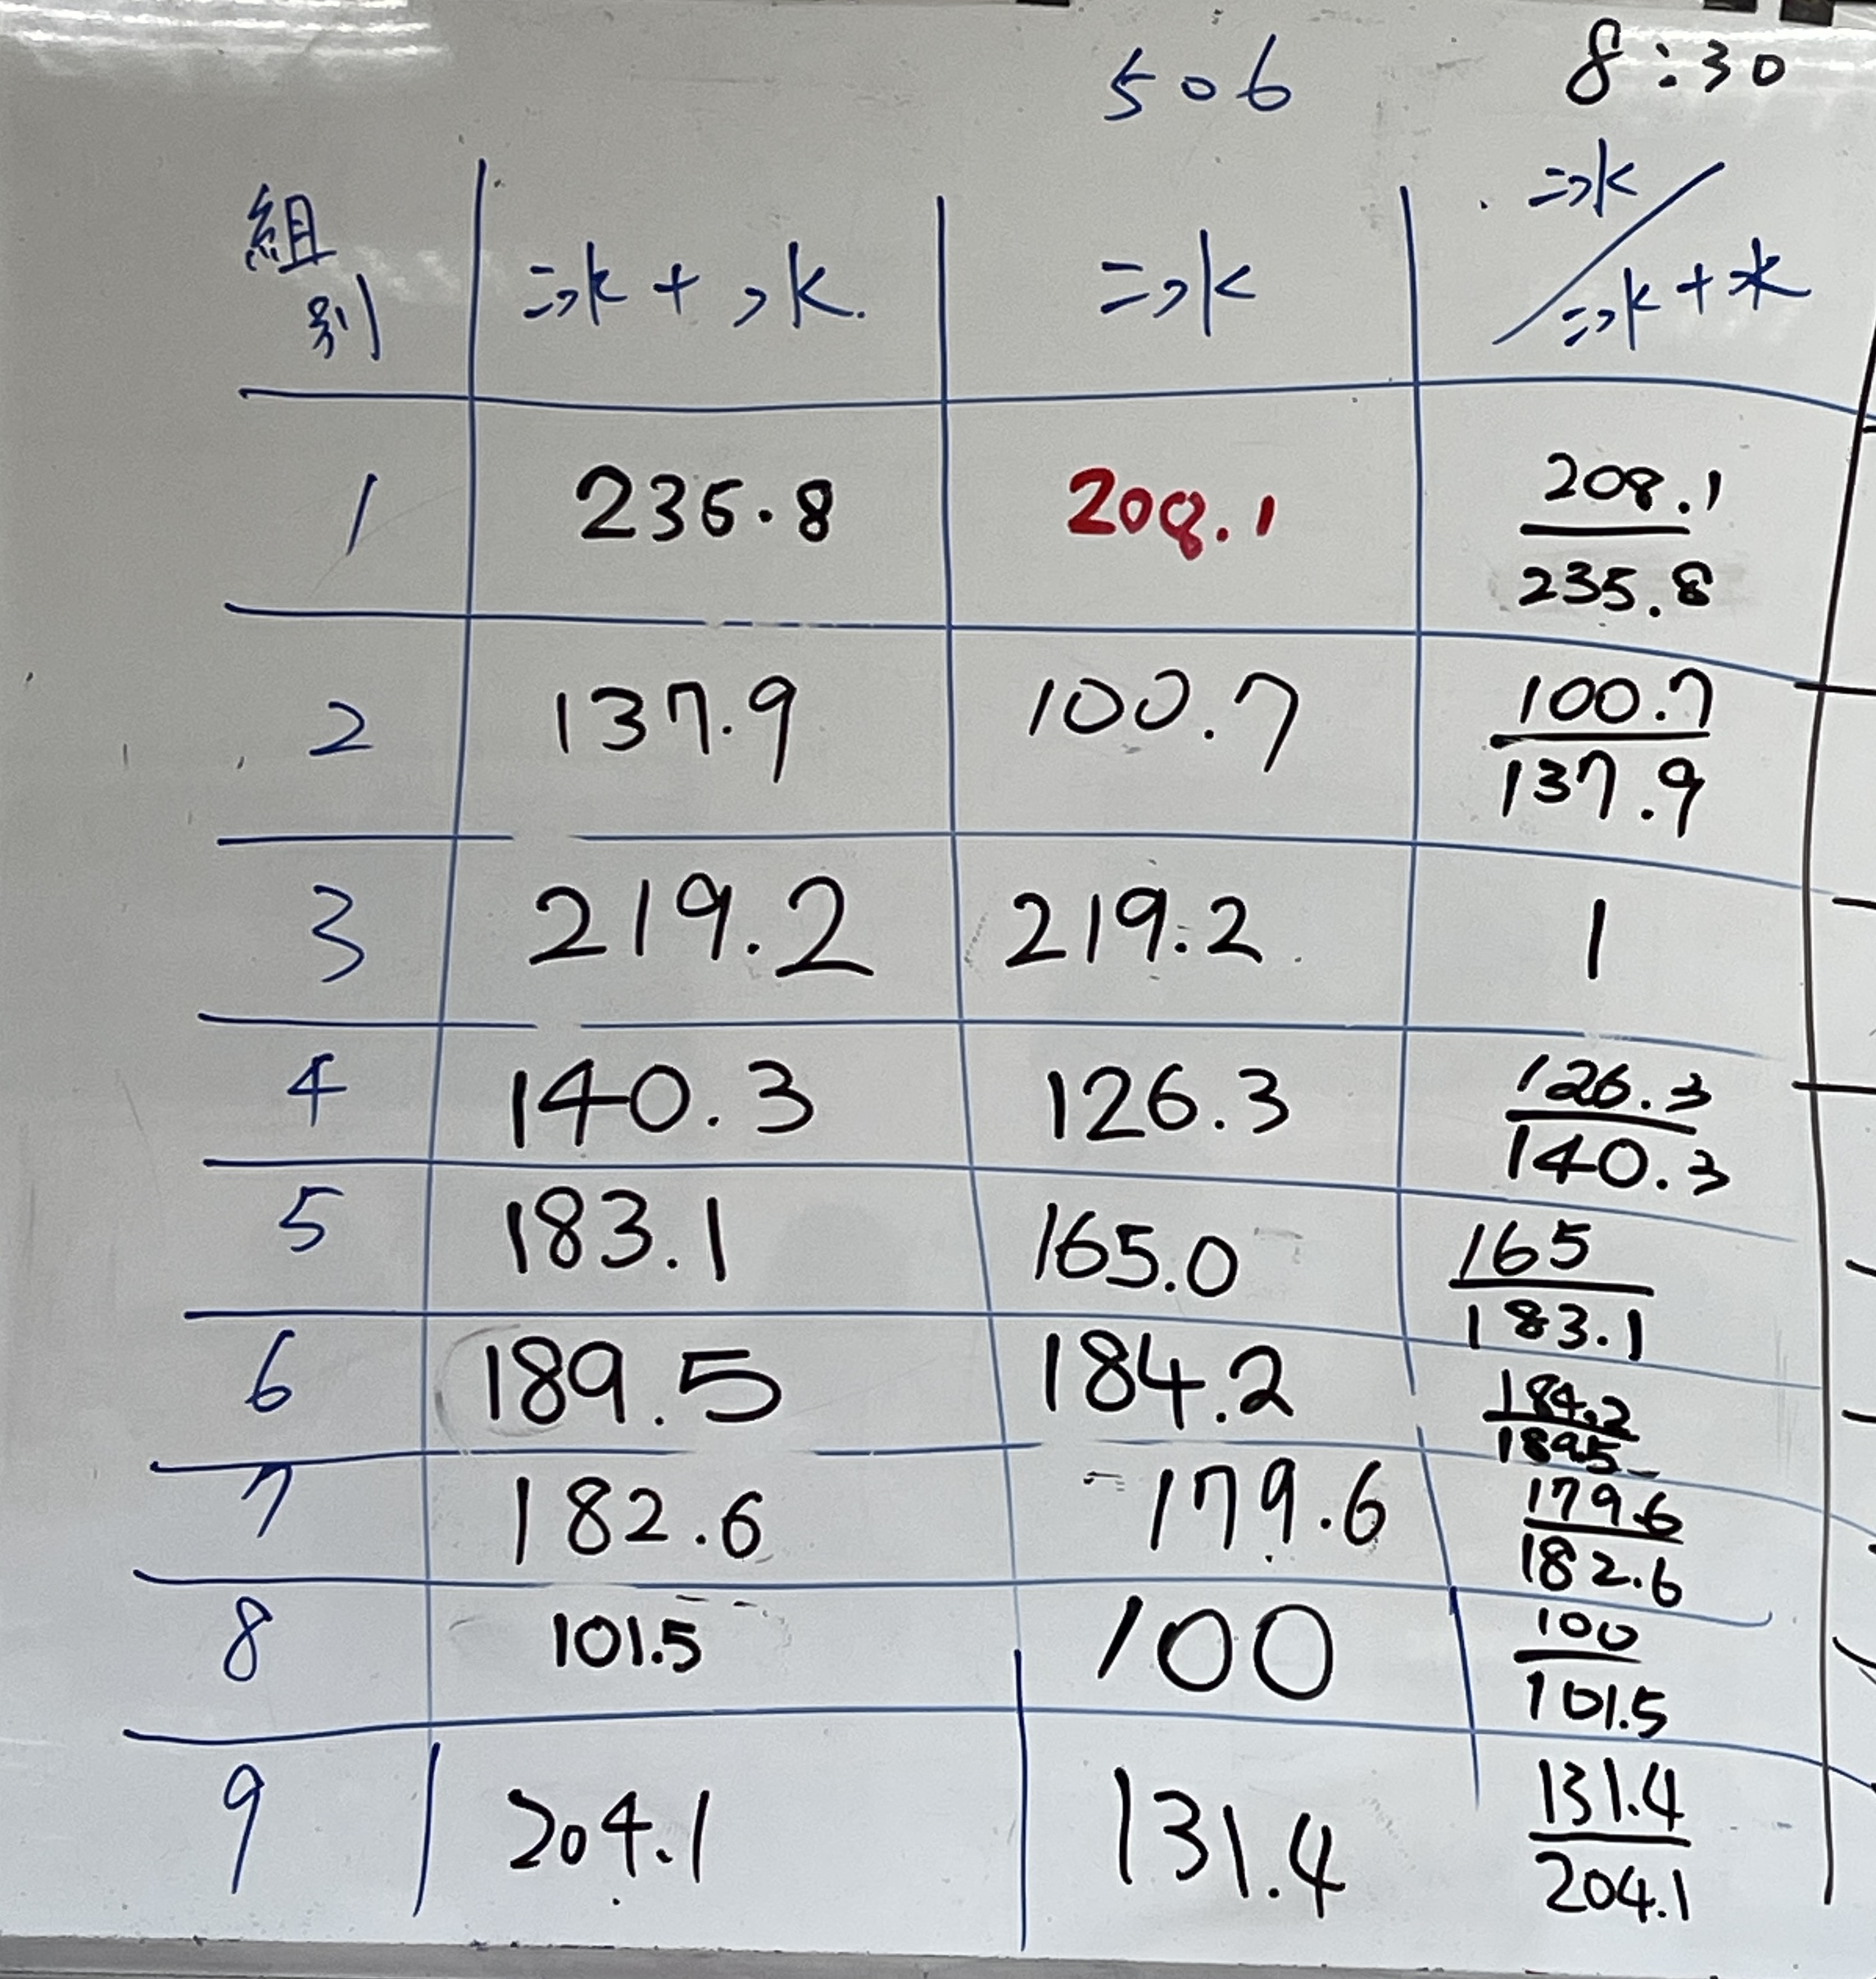 506 8:30
組別 冰+水 冰 冰/冰+水
1 235.8 208.1 208.1/235.8
2 137.9 100.7 100.7/137.9
3 219.2 219.2 1
4 140.3 126.3 126.3/140.3
5 183.1 165.0 165/183.1
6 189.5 184.2 184.2/189.5
7 182.6 179.6 179.6/182.6
8 101.5 100 100/101.5
9 204.1 131.4 131.4/204.1